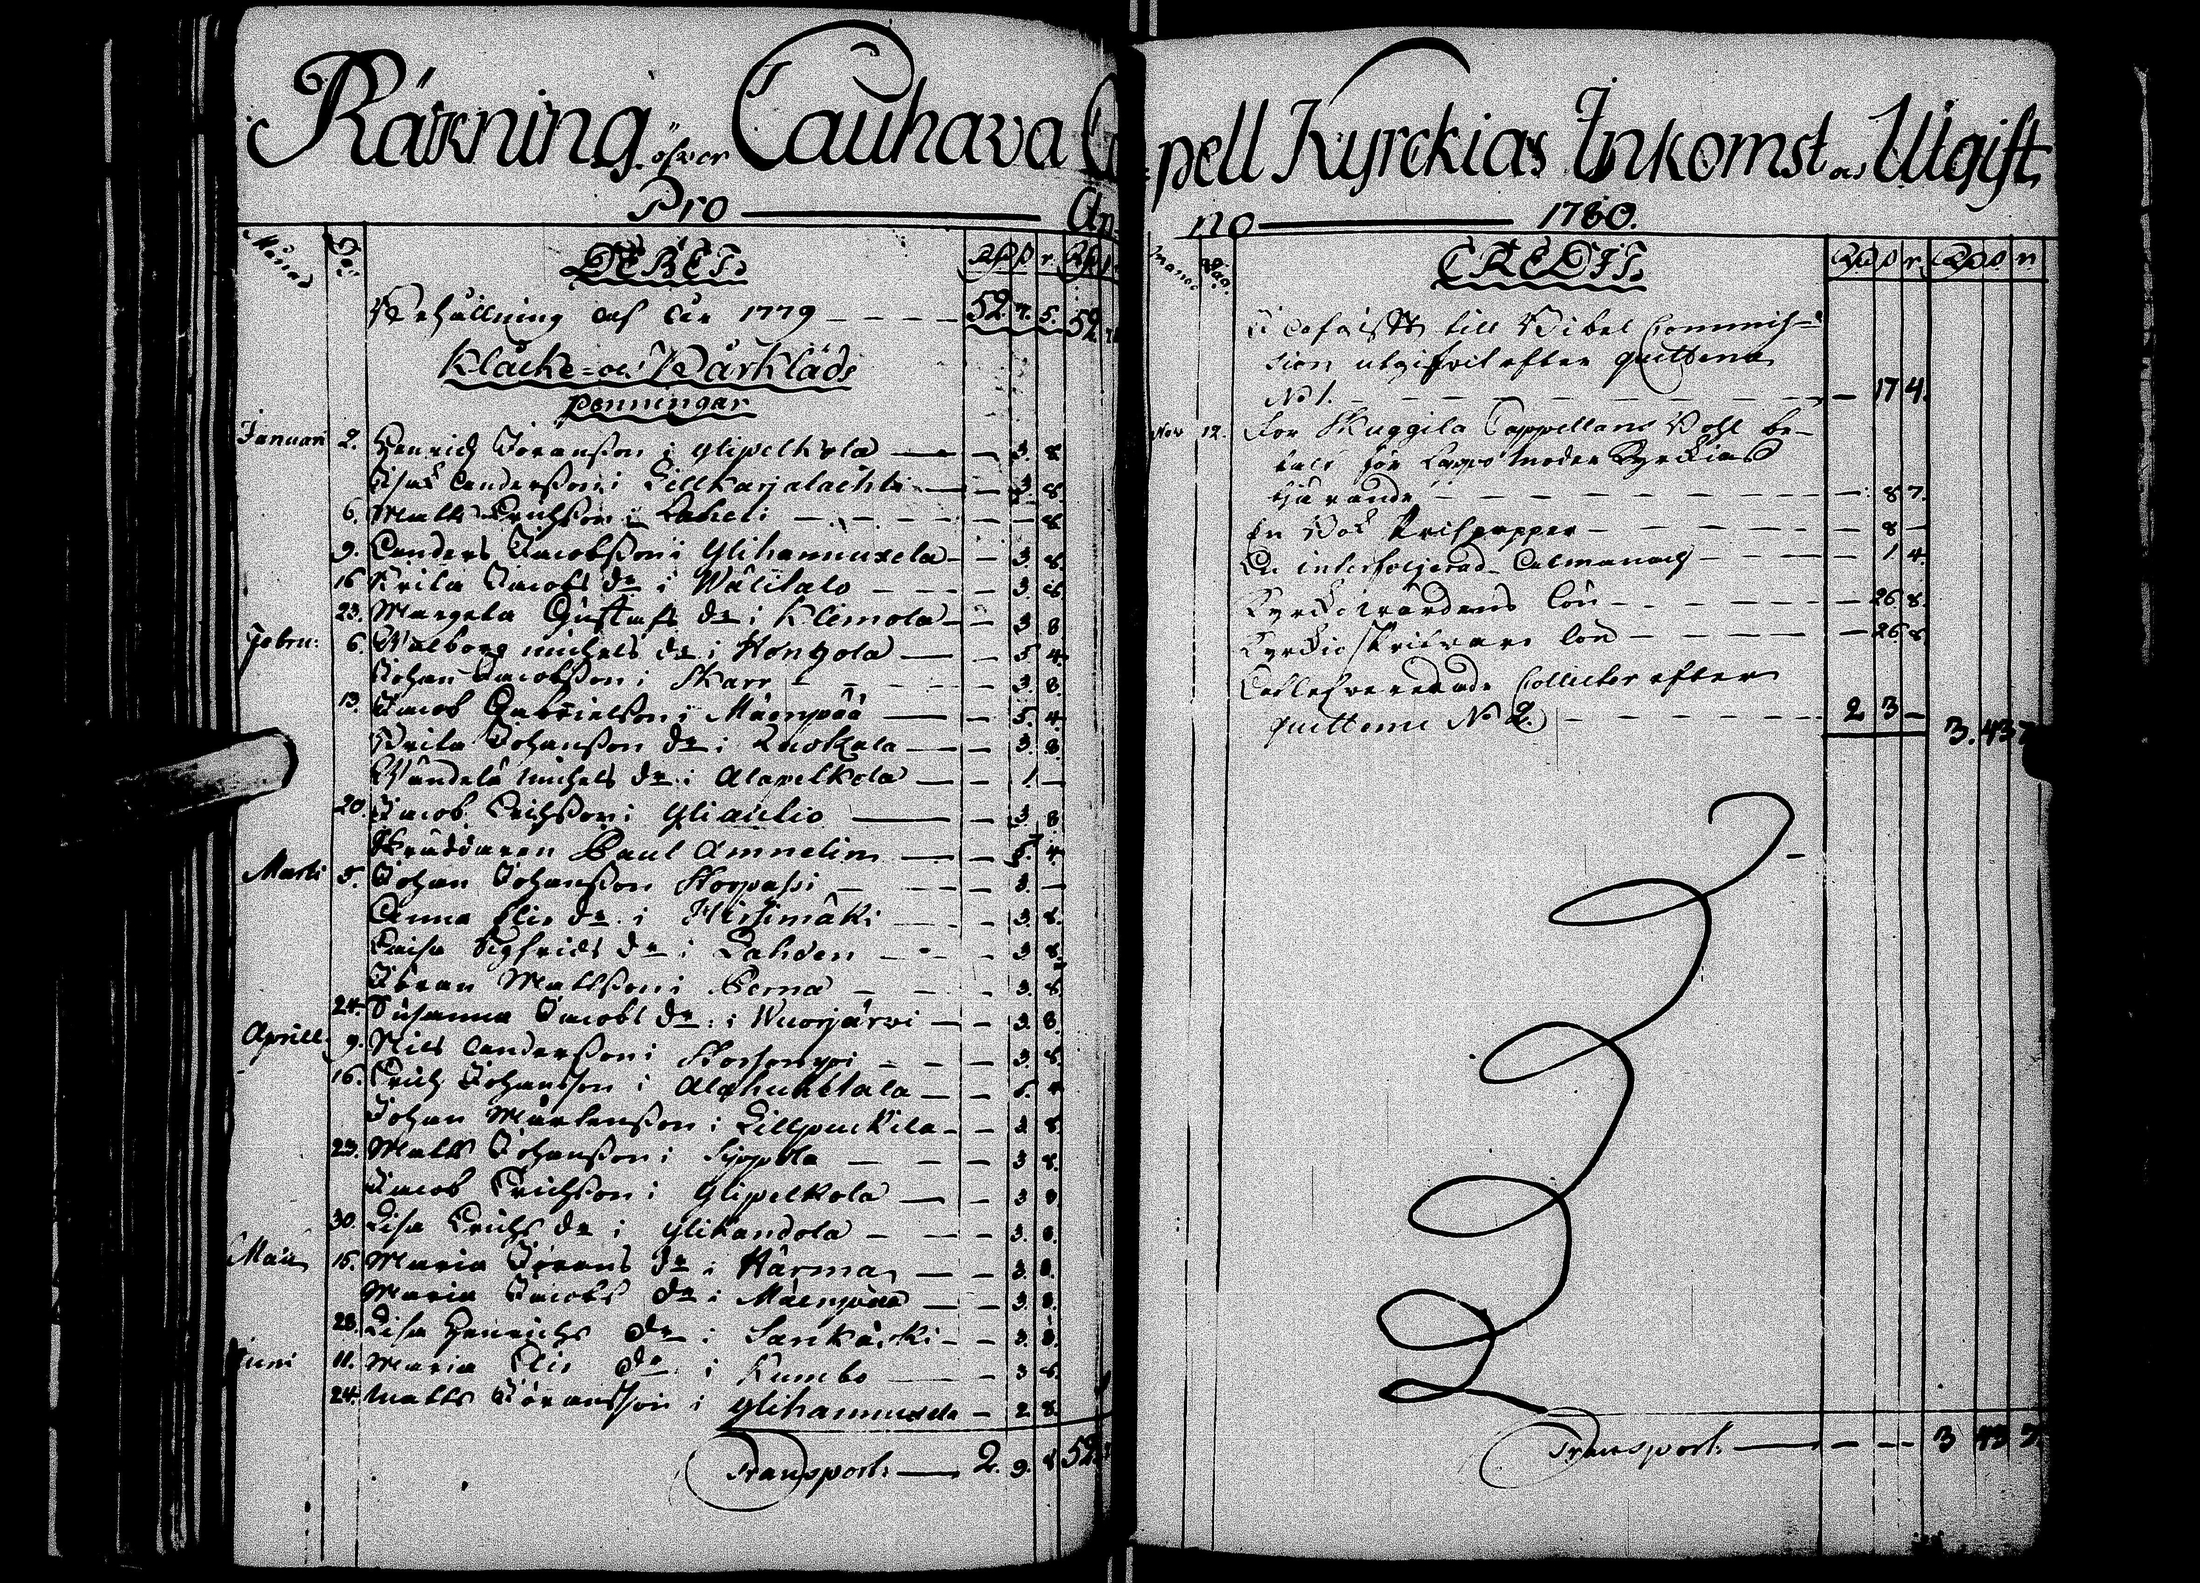 Räkning öfwer Cauhava Capell Kyrckias Inkomst och Utgift
Pro Anno 1780.
Månad Dag DEBET. Rd s r. Rd
Behållning af år 1779 52. 7. 5. 52
Klåcke- och Bårkläds
penningar
Januari 2. Henrich Jöransson i Ylipelkola 3. 8.
Isac Andersson i Lillkarjalachti 3. 8.
6. Matts Erichsson i Laheli 8.
9. Anders Jacobsson i Ylihannuxela 3. 8.
16 Brita Jacobs dr i Wälitalo 3. 8
23. Margeta Gustafs dr i Klemola 3 8
Febru: 6. Walborg Michels dr i Kongola 5 4.
Johan Jacobsson i Skarp 3. 8.
13. Jacob Gabrielsson i Mäenpää 5. 4.
Brita Johansson dr i Luokala 3. 8
Wändelä Michels dr i Alapelkola 1.
20. Jacob Erichsson i Yliaulio 3. 8
Skräddaren Paul Amnelin 5. 4.
Marti 5. Johan Johansson Korpassi 3.
Anna Elis dr i Hirsimäki 3. 8.
Caisa Sigfrids dr i Lahden 3 8
Jöran Mattsson i Perna 3. 8.
24. Susanna Jacobs dr i Wuosjärvi 3. 8.
Aprill 9. Nils Andersson i 3. 8.
16. Erich Johansson i Alahuhtala 5. 4
Johan Mårtensson i Lillpuckila 3 8.
23. Matts Johansson i Syppola 3 8.
Jacob Erichsson i Ylipelkola 3 8
30. Lisa Erichs dr i Ylikandola 3. 8.
Maii 15. Maria Jörans dr i Härma 3 8.
Maria Jacobs dr i Mäenpää 3. 8.
28. Lisa Henrichs dr i Sankäski 3. 8.
Juni 11. Maria Elis dr i Kumbo 3 8.
24. Matts Jöransson i Ylihannuxela 2 8.
Transport 2. 9. 8 52
Månad Dag. CREDIT. Rd s r. Rd s. r.
till Bibel Commis-
sion utgifwit efter quittence
No 1. 17 4.
Nov 12. För Skuggila Cappellans Bohl be-
talt för Lappo Moder Kyrckias
8 7.
En Bok Skrifpapper 8
En interfolierad Calmanach 1 4.
Kyrckiowärdens lön 26 8.
Kyrckioskrifvare lön 26 8.
Collecter efter
quittence No 2. 2 3
3. 43 7
Transport. 3 43 7.